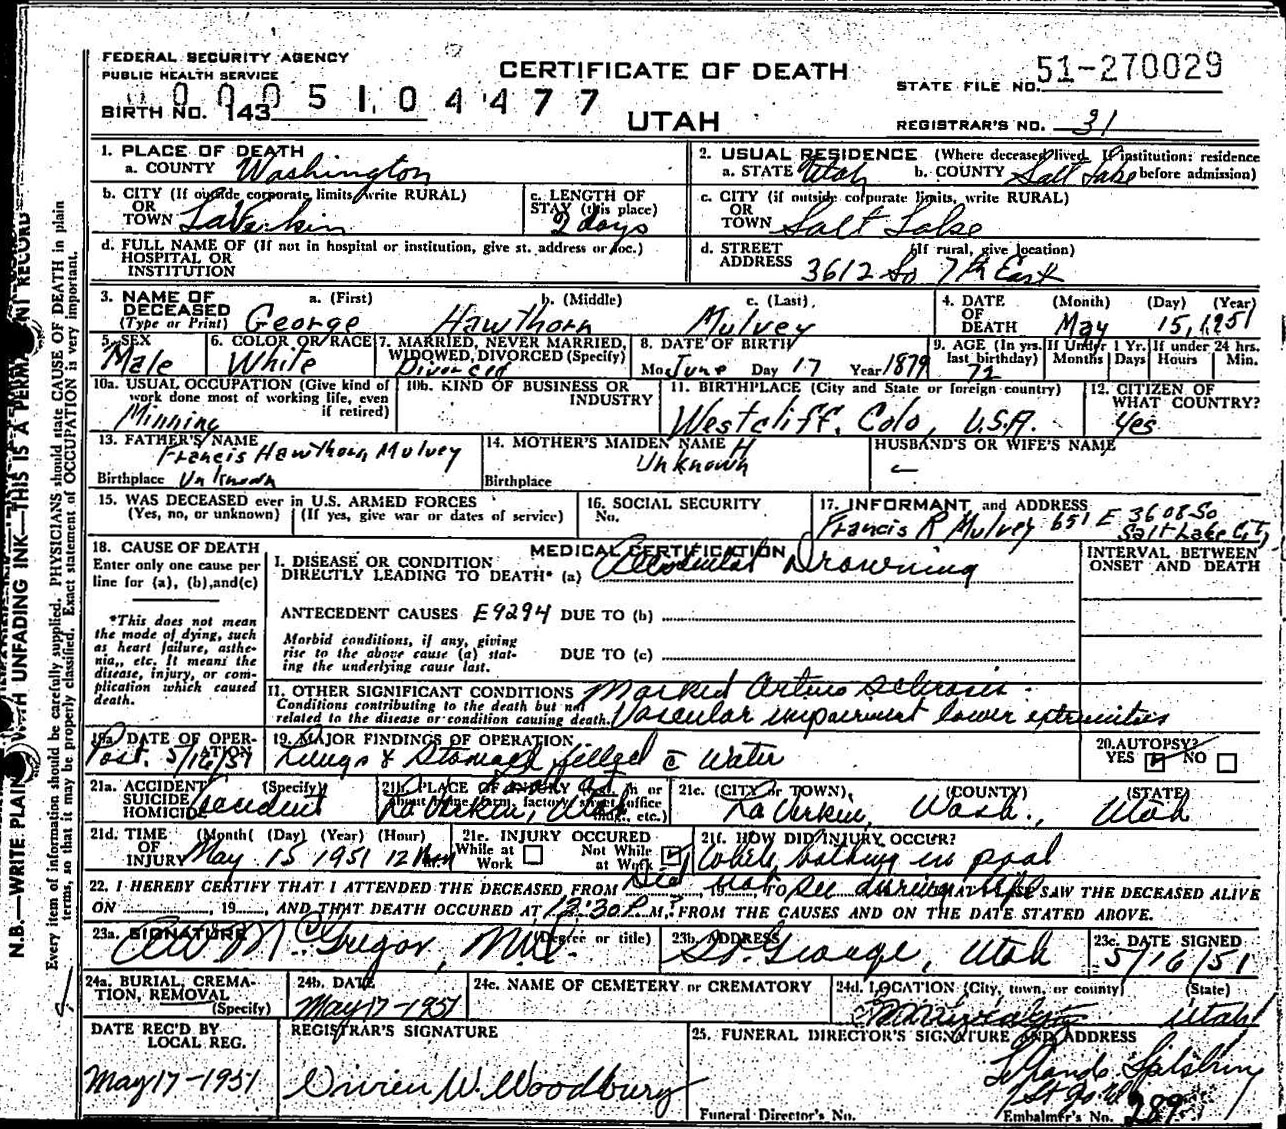 FEDERAL SECURITY AGENCY
PUBLIC HEALTH SERVICE
CERTIFICATE OF DEATH
UTAH
STATE FILE NO. 51-270029
0005104477
BIRTH NO. 143
REGISTRAR'S NO. 31
1. PLACE OF DEATH
a. COUNTY Washington
b. CITY (If outside corporate limits, write RURAL)
OR
TOWN LaVerkin
c. LENGTH OF
STAY (this place)
2 days
d. FULL NAME OF (If not in hospital or institution, give st. address or loc.)
HOSPITAL OR
INSTITUTION
2. USUAL RESIDENCE (Where deceased lived. If institution: residence
a. STATE Utah b. COUNTY Salt Lake before admission)
c. CITY (if outside corporate limits, write RURAL)
OR
TOWN Salt Lake
d. STREET (If rural, give location)
ADDRESS 3612 So 7th East
3. NAME OF DECEASED
(Type or Print)
a. (First) b. (Middle) c. (Last)
George Hawthorn Mulvey
4. DATE OF DEATH (Month) (Day) (Year)
May 15, 1951
5. SEX
Male
6. COLOR OR RACE
White
7. MARRIED, NEVER MARRIED,
WIDOWED, DIVORCED (Specify)
Divorced
8. DATE OF BIRTH
Mo. June Day 17 Year 1879
9. AGE (In yrs. last birthday) If Under 1 Yr. If under 24 hrs.
72 Months Days Hours Min.
10a. USUAL OCCUPATION (Give kind of
work done most of working life, even
if retired)
Minning
10b. KIND OF BUSINESS OR
INDUSTRY
11. BIRTHPLACE (City and State or foreign country)
Westcliff, Colo, U.S.A.
12. CITIZEN OF
WHAT COUNTRY?
Yes
13. FATHER'S NAME
Francis Hawthorn Mulvey
Birthplace Unknown
14. MOTHER'S MAIDEN NAME
Unknown
Birthplace
HUSBAND'S OR WIFE'S NAME
–
15. WAS DECEASED ever in U.S. ARMED FORCES
(Yes, no, or unknown) (If yes, give war or dates of service)
16. SOCIAL SECURITY
No.
17. INFORMANT and ADDRESS
Francis R Mulvey 651 E 3608 So
Salt Lake City
18. CAUSE OF DEATH
Enter only one cause per
line for (a), (b), and (c)
*This does not mean
the mode of dying, such
as heart failure, asthe-
nia, etc. It means the
disease, injury, or com-
plication which caused
death.
MEDICAL CERTIFICATION
I. DISEASE OR CONDITION
DIRECTLY LEADING TO DEATH* (a) Accidental Drowning
ANTECEDENT CAUSES E9294 DUE TO (b)
Morbid conditions, if any, giving
rise to the above cause (a) stat-
ing the underlying cause last.
DUE TO (c)
INTERVAL BETWEEN
ONSET AND DEATH
II. OTHER SIGNIFICANT CONDITIONS
Conditions contributing to the death but not
related to the disease or condition causing death.
Marked Arterio Sclerosis.
Vascular impairment lower extremities
19a. DATE OF OPER-
ATION
Post. 5/16/51
19. MAJOR FINDINGS OF OPERATION
Lungs & Stomach filled c Water
20. AUTOPSY?
YES NO
21a. ACCIDENT (Specify)
SUICIDE
HOMICIDE
Accident
21b. PLACE OF INJURY
La Verkin, Utah
21c. (CITY or TOWN) (COUNTY) (STATE)
La Verkin, Wash., Utah
21d. TIME OF INJURY (Month) (Day) (Year) (Hour)
May 15 1951 12
21e. INJURY OCCURED
While at Work Not While at Work
21f. HOW DID INJURY OCCUR?
While bathing in pool
22. I HEREBY CERTIFY THAT I ATTENDED THE DECEASED, FROM Did not see during life SAW THE DECEASED ALIVE
ON , 19 , AND THAT DEATH OCCURED AT 12:30 P.M., FROM THE CAUSES AND ON THE DATE STATED ABOVE.
23a. SIGNATURE (Degree or title)
AW McGregor, M.D.
23b. ADDRESS
St. George, Utah
23c. DATE SIGNED
5/16/51
24a. BURIAL, CREMA-
TION, REMOVAL
(Specify)
24b. DATE
May 17-1951
24c. NAME OF CEMETERY or CREMATORY
24d. LOCATION (City, town, or county) (State)
Utah
DATE REC'D BY
LOCAL REG.
May 17-1951
REGISTRAR'S SIGNATURE
Vivien W. Woodbury
25. FUNERAL DIRECTOR'S SIGNATURE AND ADDRESS
Funeral Director's No.
Embalmer's No. 289
N.B.—WRITE PLAINLY WITH UNFADING INK—THIS IS A PERMANENT RECORD
Every item of information should be carefully supplied. PHYSICIANS should state CAUSE OF DEATH in plain
terms, so that it may be properly classified. Exact statement of OCCUPATION is very important.